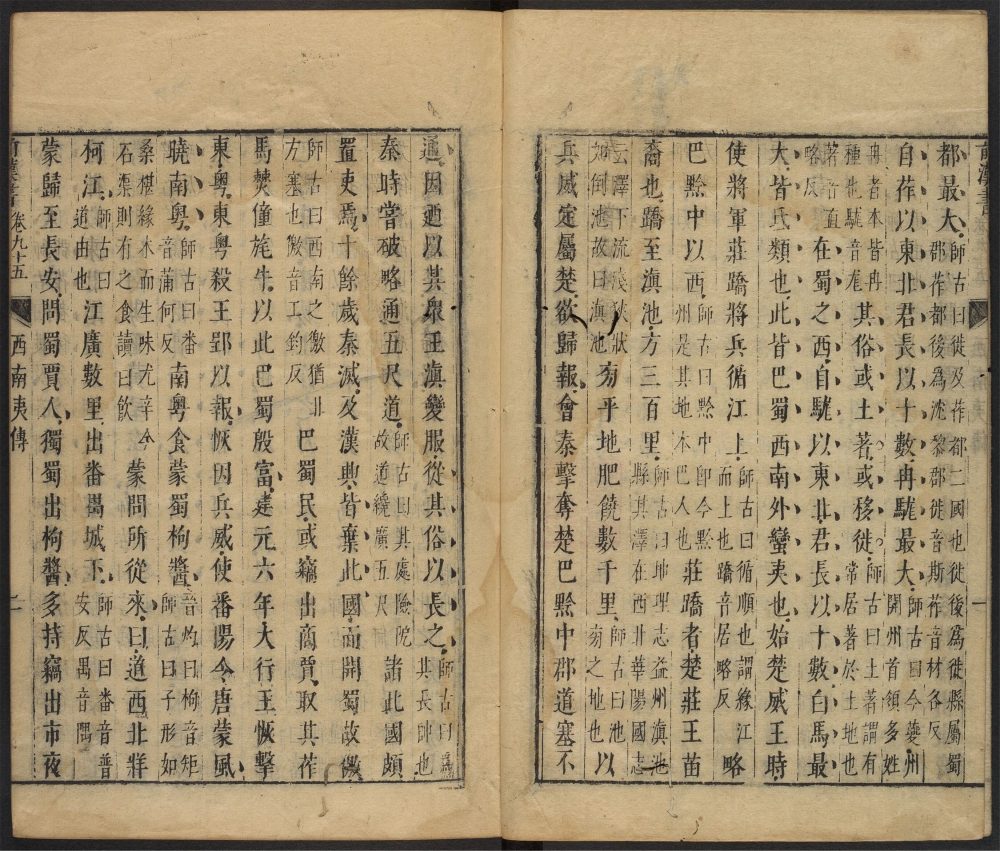 前漢書
都最大師古曰徙及莋都二國也徙後爲徙縣屬蜀郡莋都後爲沈黎郡徙音斯莋音材各反
自莋以東北君長以十數冉駹最大師古曰今夔州開州首領多姓
冉者本皆冉種也駹音尨其俗或土著或移徙師古曰土著謂有常居著於土地也
著音直略反在蜀之西自駹以東北君長以十數白馬最
大皆氐類也此皆巴蜀西南外蠻夷也始楚威王時
使將軍莊蹻將兵循江上師古曰循順也謂緣江而上也蹻音居略反略
巴黔中以西師古曰黔中卽今黔州是其地本巴人也莊蹻者楚莊王苗
裔也蹻至滇池方三百里師古曰地理志益州滇池縣其澤在西北華陽國志
云澤下流淺狹狀如倒池故曰滇池旁平地肥饒數千里師古曰池旁之地也以
兵威定屬楚欲歸報會秦擊奪楚巴黔中郡道塞不
通因迺以其衆王滇變服從其俗以長之師古曰爲其長帥也
秦時嘗破略通五尺道師古曰其處險阸故道纔廣五尺諸此國頗
置吏焉十餘歲秦滅及漢興皆棄此國而開蜀故徼
師古曰西南之徼猶北方塞也徼音工釣反巴蜀民或竊出商賈取其莋
馬僰僮旄牛以此巴蜀殷富建元六年大行王恢擊
東粵東粵殺王郢以報恢因兵威使番陽令唐蒙風
曉南粵師古曰番音蒲何反南粵食蒙蜀枸醬音灼曰枸音矩師古曰子形如
桑椹緣木而生味尤辛今石渠則有之食讀曰飲蒙問所從來曰道西北牂
柯江師古曰道由也江廣數里出番禺城下師古曰番音普安反禺音隅
蒙歸至長安問蜀賈人獨蜀出枸醬多持竊出市夜
前漢書 卷九十五 西南夷傳 二